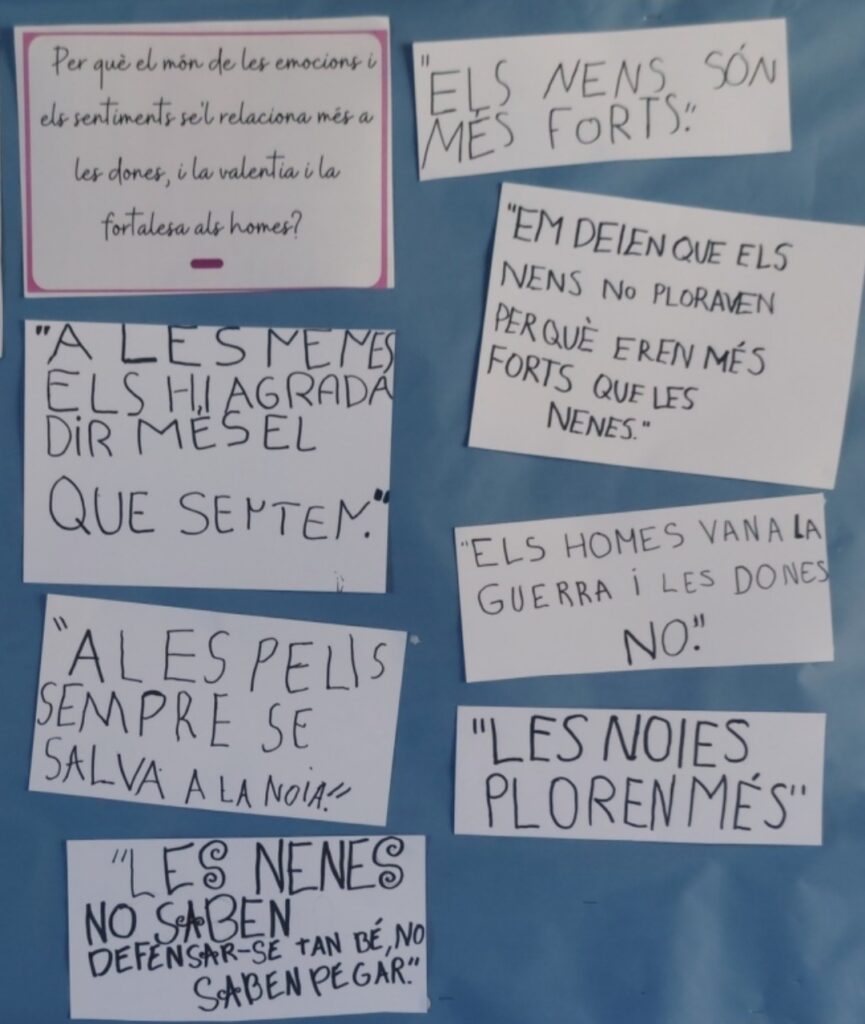 Per què el món de les emocions i
els sentiments se'l relaciona més a
les dones, i la valentia i la
fortalesa als homes?
"A LES NENES
ELS HI AGRADA
DIR MÉS EL
QUE SENTEN."
"A LES PELIS
SEMPRE SE
SALVA A LA NOIA."
"LES NENES
NO SABEN
DEFENSAR-SE TAN BÉ, NO
SABEN PEGAR."
"ELS NENS SÓN
MÉS FORTS."
"EM DEIEN QUE ELS
NENS NO PLORAVEN
PERQUÈ EREN MÉS
FORTS QUE LES
NENES."
"ELS HOMES VAN A LA
GUERRA I LES DONES
NO."
"LES NOIES
PLOREN MÉS"